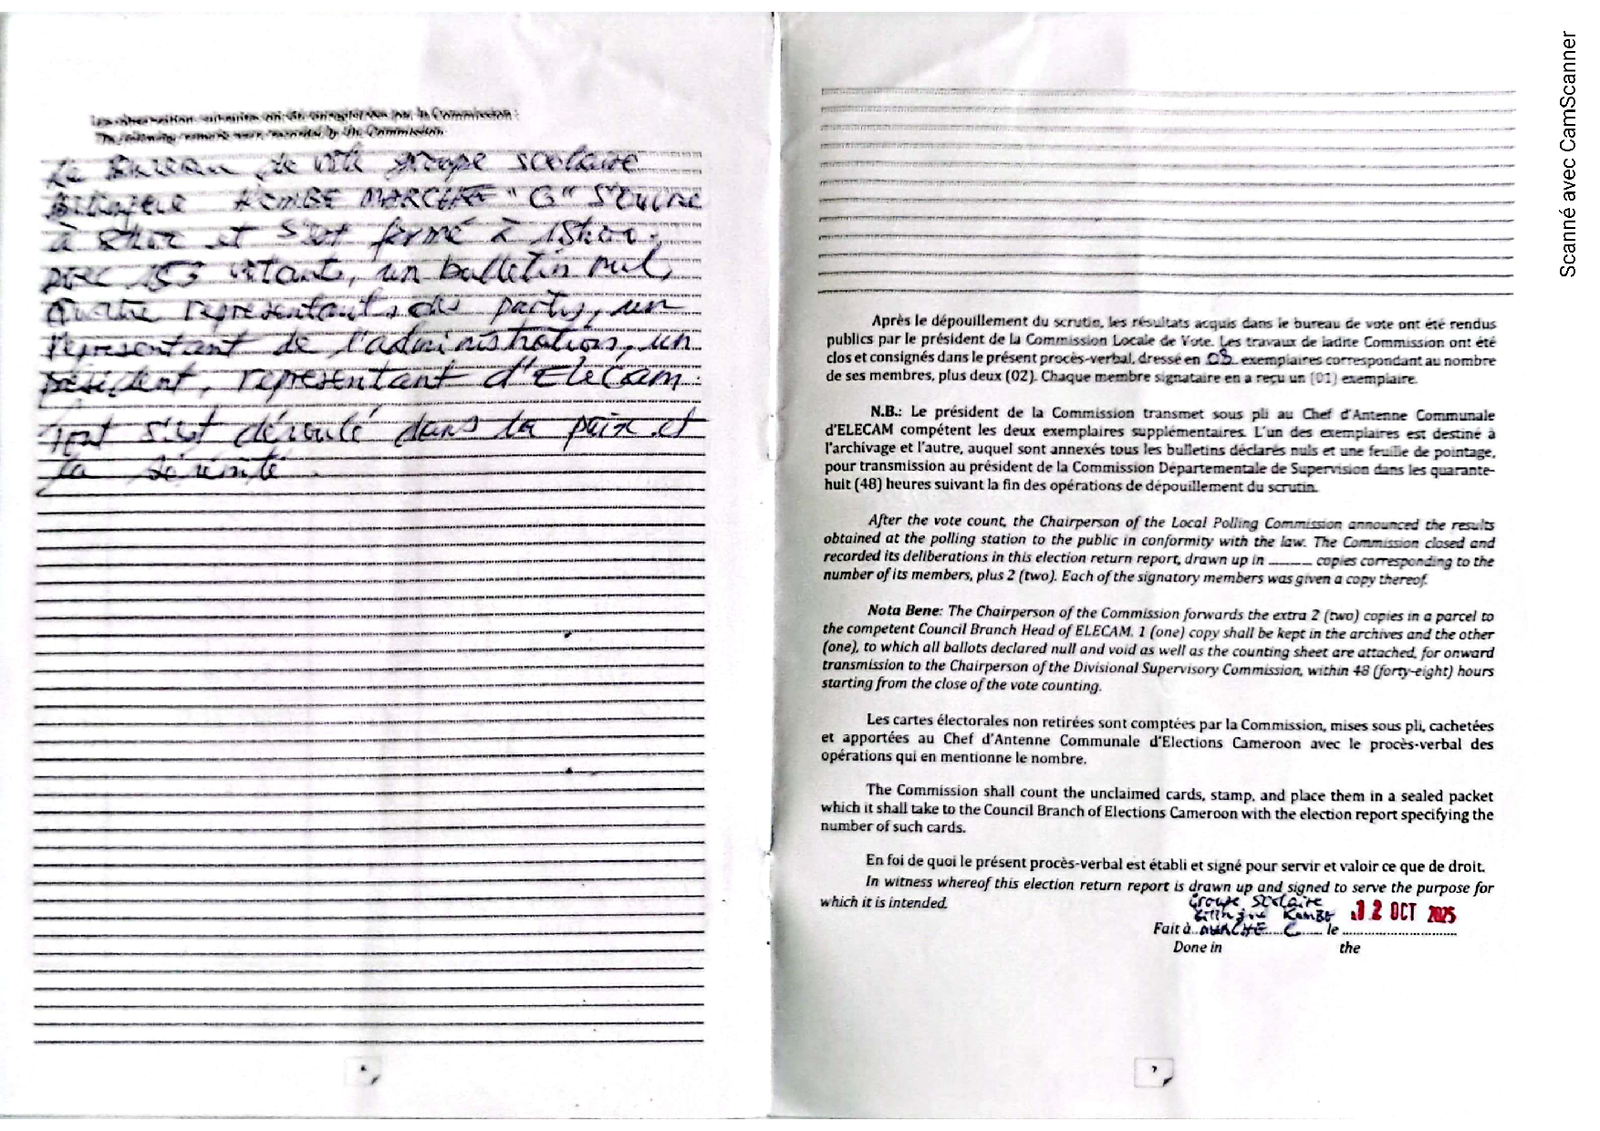 Les observations suivantes ont été enregistrées par la Commission :
The following remarks were recorded by the Commission
Le Bureau de vote groupe scolaire
Bilingue KOMBE MARCHE "C" S'ouvre
à et s'est fermé à 18h00.
avec 153 votants, un bulletin nul,
Quatre representants des partis, un
representant de l'administration, un
président, representant d'Elecam.
Tout s'est déroulé dans la paix et
la sérénité.
6
Après le dépouillement du scrutin, les résultats acquis dans le bureau de vote ont été rendus
publics par le président de la Commission Locale de Vote. Les travaux de ladite Commission ont été
clos et consignés dans le présent procès-verbal, dressé en 08 exemplaires correspondant au nombre
de ses membres, plus deux (02). Chaque membre signataire en a reçu un (01) exemplaire.
N.B.: Le président de la Commission transmet sous pli au Chef d'Antenne Communale
d'ELECAM compétent les deux exemplaires supplémentaires. L'un des exemplaires est destiné à
l'archivage et l'autre, auquel sont annexés tous les bulletins déclarés nuls et une feuille de pointage,
pour transmission au président de la Commission Départementale de Supervision dans les quarante-
huit (48) heures suivant la fin des opérations de dépouillement du scrutin.
After the vote count, the Chairperson of the Local Polling Commission announced the results
obtained at the polling station to the public in conformity with the law. The Commission closed and
recorded its deliberations in this election return report, drawn up in ........ copies corresponding to the
number of its members, plus 2 (two). Each of the signatory members was given a copy thereof.
Nota Bene: The Chairperson of the Commission forwards the extra 2 (two) copies in a parcel to
the competent Council Branch Head of ELECAM. 1 (one) copy shall be kept in the archives and the other
(one), to which all ballots declared null and void as well as the counting sheet are attached, for onward
transmission to the Chairperson of the Divisional Supervisory Commission, within 48 (forty-eight) hours
starting from the close of the vote counting.
Les cartes électorales non retirées sont comptées par la Commission, mises sous pli, cachetées
et apportées au Chef d'Antenne Communale d'Elections Cameroon avec le procès-verbal des
opérations qui en mentionne le nombre.
The Commission shall count the unclaimed cards, stamp, and place them in a sealed packet
which it shall take to the Council Branch of Elections Cameroon with the election report specifying the
number of such cards.
En foi de quoi le présent procès-verbal est établi et signé pour servir et valoir ce que de droit.
In witness whereof this election return report is drawn up and signed to serve the purpose for
which it is intended.
Groupe Scolaire
Bilingue Kombe 12 OCT 2025
Fait à MARCHE C le
Done in the
7
Scanné avec CamScanner